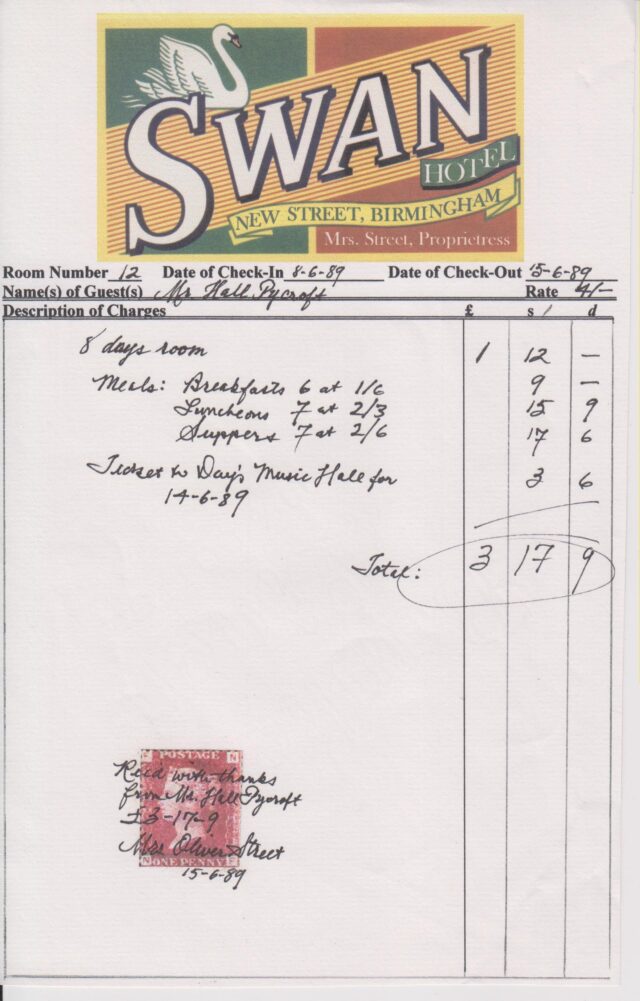 SWAN
HOTEL
NEW STREET, BIRMINGHAM
Mrs. Street, Proprietress
Room Number 12 Date of Check-In 8-6-89 Date of Check-Out 15-6-89
Name(s) of Guest(s) Mr Hall Pycroft Rate 4/-
Description of Charges £ s d
8 days room 1 12 —
Meals: Breakfasts 6 at 1/6 9 —
Luncheons 7 at 2/3 15 9
Suppers 7 at 2/6 17 6
Ticket to Day's Music Hall for 3 6
14-6-89
Total: 3 17 9
POSTAGE
Recd with thanks
from Mr. Hall Pycroft
£3-17-9
Mrs Oliver Street
ONE PENNY
15-6-89